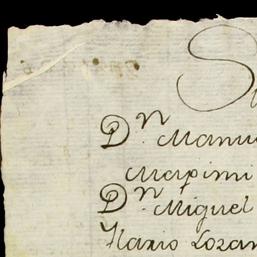 Dn. Manu
Maximi
Dn. Miguel
Ilario Lozan